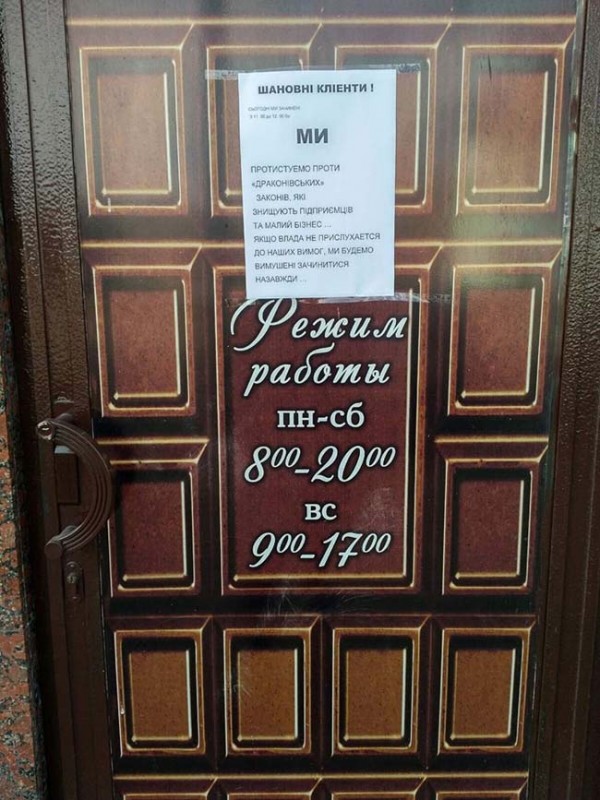 ШАНОВНІ КЛІЕНТИ !
СЬОГОДНІ МИ ЗАЧИНЕНІ
МИ
ПРОТИСТУЕМО ПРОТИ
«ДРАКОНІВСЬКИХ»
ЗАКОНІВ, ЯКІ
ЗНИЩУЮТЬ ПІДПРИЄМЦІВ
ТА МАЛИЙ БІЗНЕС ...
ЯКЩО ВЛАДА НЕ ПРИСЛУХАЕТСЯ
ДО НАШИХ ВИМОГ, МИ БУДЕМО
ВИМУШЕНІ ЗАЧИНИТИСЯ
НАЗАВЖДИ ...
Режим
работы
пн-сб
8⁰⁰-20⁰⁰
вс
9⁰⁰-17⁰⁰